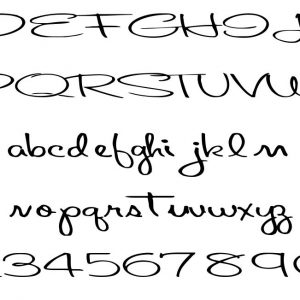 DEFGHIJ
PQRSTUVW
abcdefghi jkl n
nopqrstuvwxyz
234567890